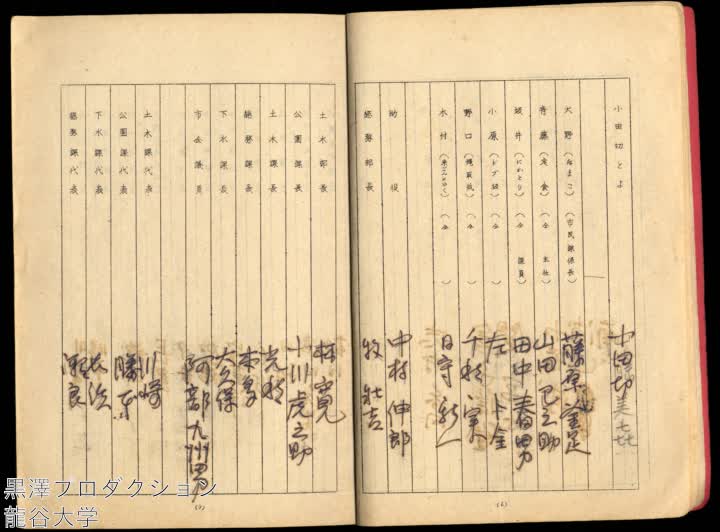 小田切とよ 小田切美㐂
大野(なまこ)(市民課係長) 藤原釜足
斉藤(定食)(仝 主任) 山田巳之助
坂井(にわとり)(仝 議員) 田中春男
小原(ドブ板)(仝 ) 左卜全
野口(蠅取紙)(仝 ) 千秋実
木村(糸ごんにゃく)(仝 ) 日守新一
助役 中村伸郎
総務部長 牧壮吉
(6)
土木部長 林寛
公園課長 小川虎之助
土木課長
総務課長 本多
下水課長 大久保
市会議員 阿部九州男
土木課代表 川崎
公園課代表 勝本
下水課代表 長浜
総務課代表
黒澤プロダクション
龍谷大学